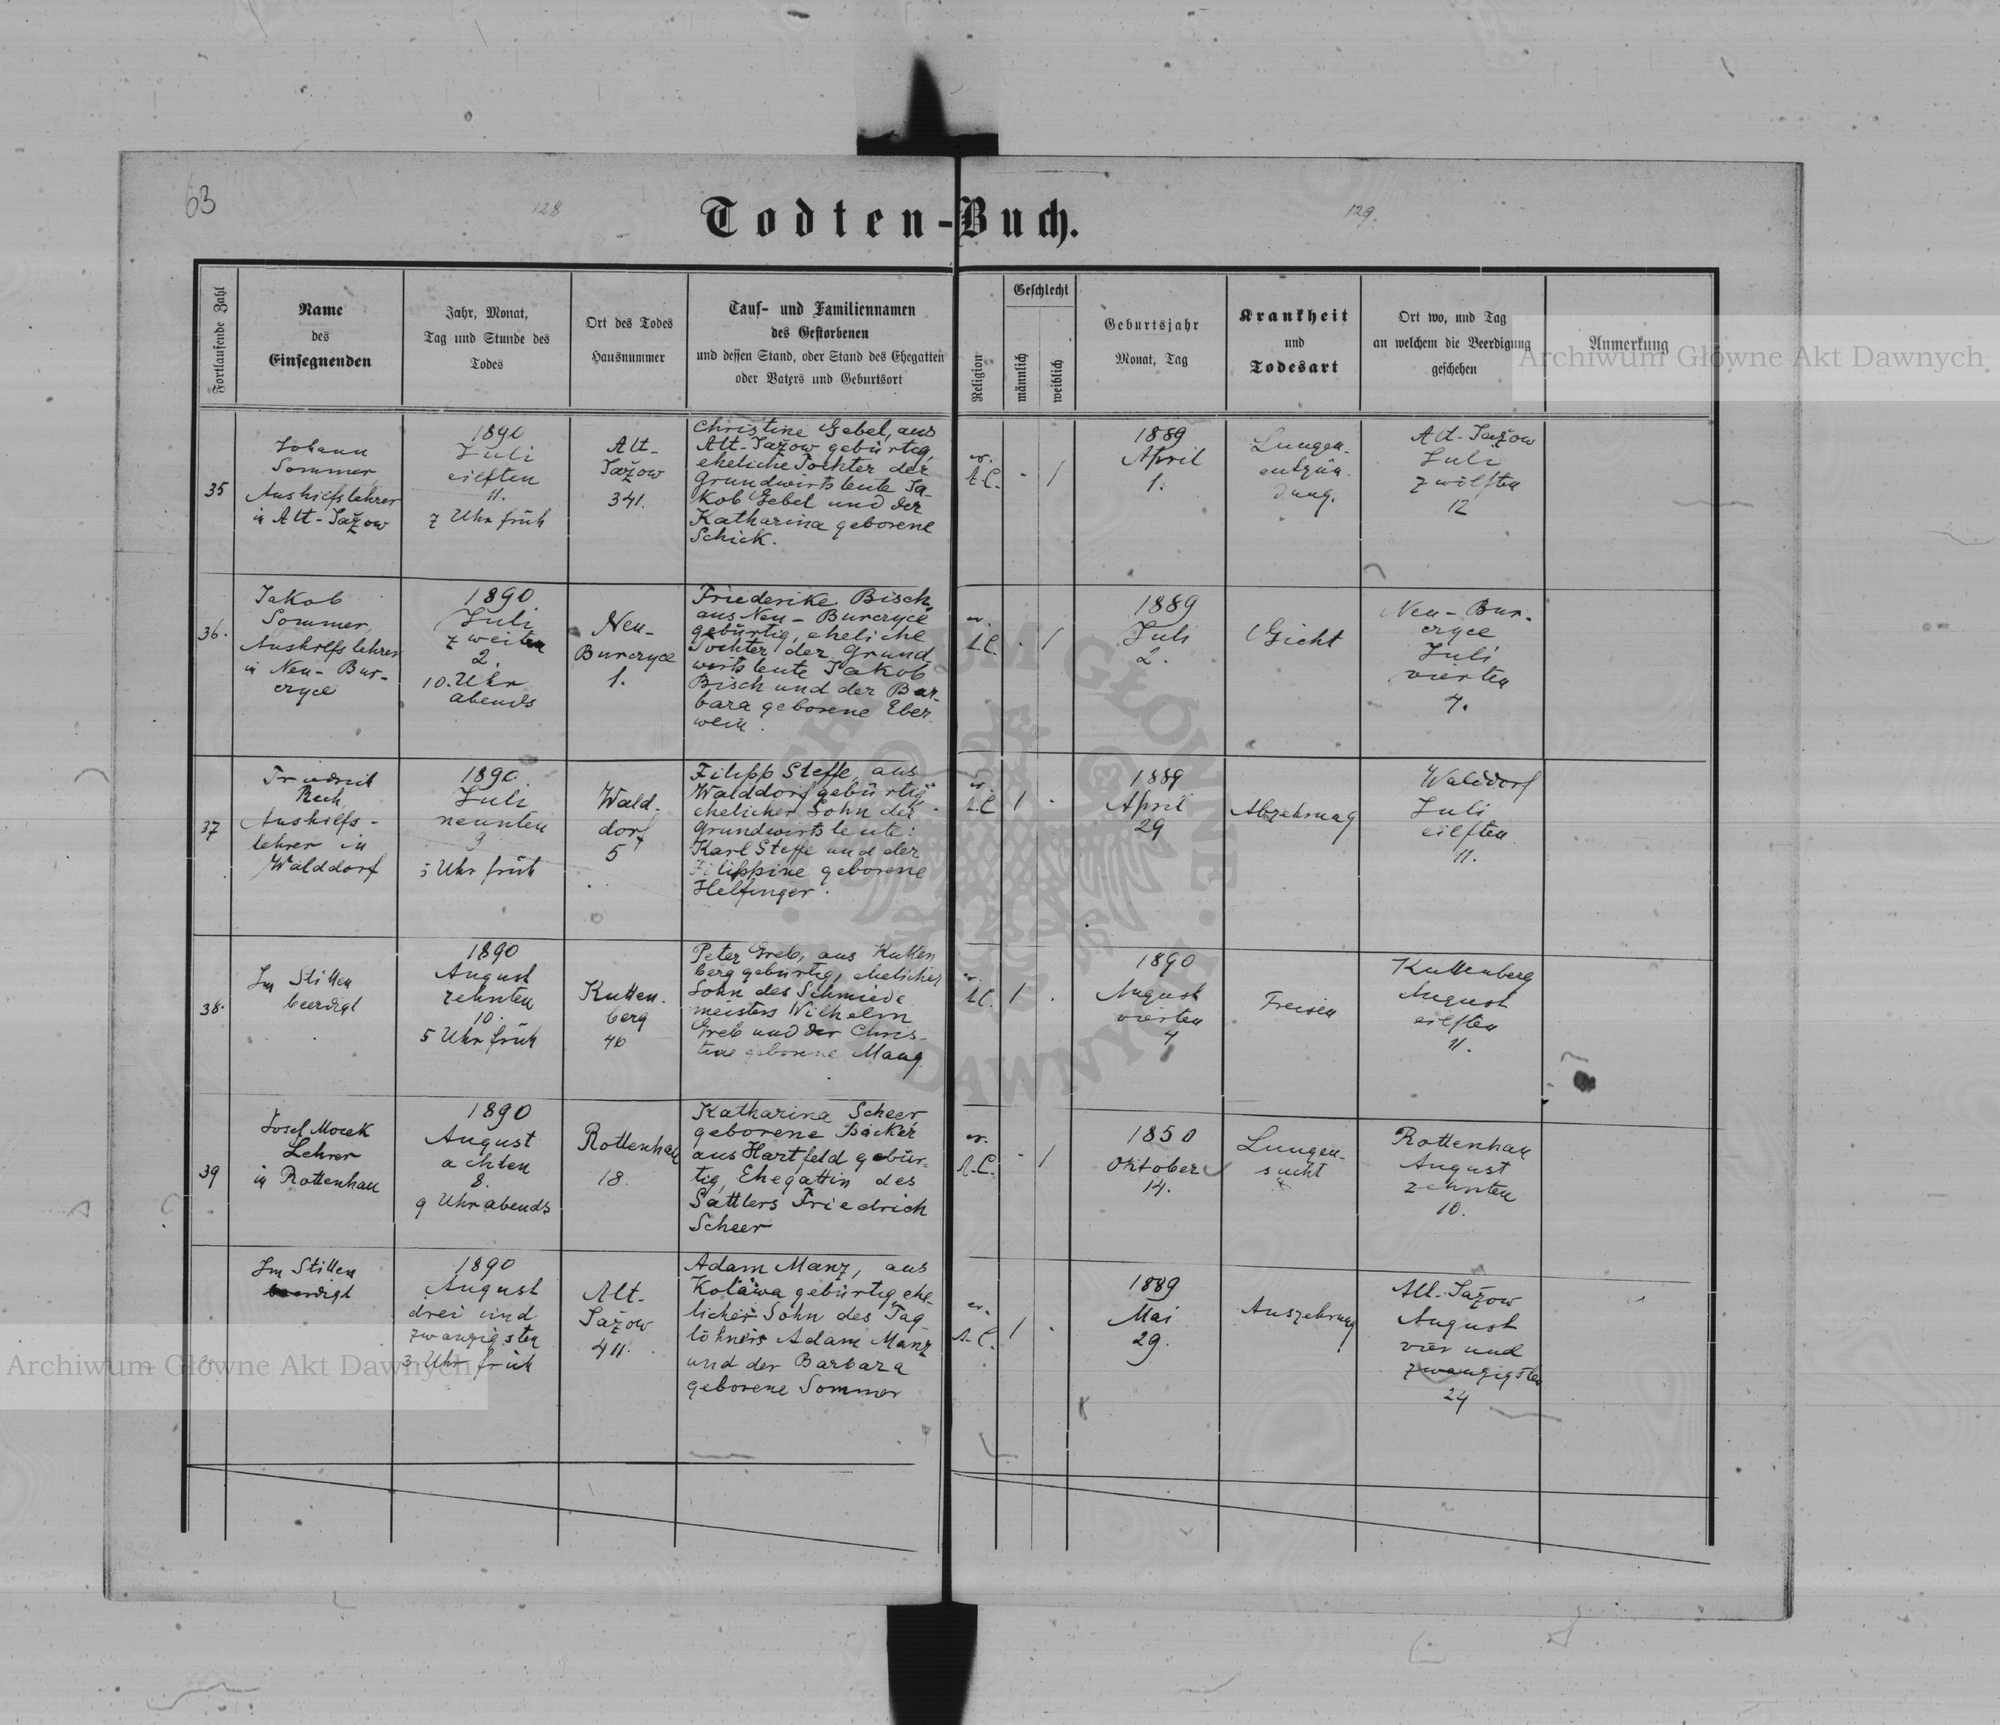 63
128
Todten-Buch.
129.
Fortlaufende Zahl
Name
des
Einsegnenden
Jahr, Monat,
Tag und Stunde des
Todes
Ort des Todes
Hausnummer
Tauf- und Familiennamen
des Gestorbenen
und dessen Stand, oder Stand des Ehegatten
oder Vaters und Geburtsort
Religion
Geschlecht
männlich
weiblich
Geburtsjahr
Monat, Tag
Krankheit
und
Todesart
Ort wo, und Tag
an welchem die Beerdigung
geschehen
Anmerkung
Archiwum Główne Akt Dawnych
35
Johann
Sommer,
Aushilfslehrer
in Alt-Jažow
1890
Juli
eilften
11.
7 Uhr früh
Alt-
Jažow
341.
Christine Gebel, aus
Alt-Jažow gebürtig,
eheliche Tochter der
Grundwirtsleute Ja-
kob Gebel und der
Katharina geborene
Schick.
ev.
A.C.
- 1
1889
April
1.
Lungen-
entzün-
dung.
Alt-Jažow
Juli
zwölften
12
36.
Jakob
Sommer,
Aushilfslehrer
in Neu-Bur-
czyce
1890
Juli
zweiten
2.
10. Uhr
abends
Neu-
Burczyce
1.
Friederike Bisch,
aus Neu-Burczyce
gebürtig, eheliche
Tochter der Grund
wirtsleute Jakob
Bisch und der Bar-
bara geborene Eber
wein.
ev.
A.C.
- 1
1889
Juli
2.
Gicht
Neu-Bur-
czyce
Juli
vierten
4.
37
Friedrich
Rech,
Aushilfs-
lehrer in
Walddorf
1890
Juli
neunten
9
5 Uhr früh
Wald-
dorf
5
Filipp Steffe, aus
Walddorf gebürtig
ehelicher Sohn der
Grundwirtsleute:
Karl Steffe und der
Filippine geborene
Helfinger.
ev.
A.C.
1 -
1889
April
29
Abzehrung
Walddorf
Juli
eilften
11.
38.
Im Stillen
beerdigt
1890
August
zehnten
10.
5 Uhr früh
Kutten-
berg
40
Peter Greb, aus Kutten
berg gebürtig, ehelicher
Sohn des Schmiede
meisters Wilhelm
Greb und der Chris-
tine geborene Mang
ev.
A.C.
1 .
1890
August
vierten
4
Freisen
Kuttenberg
August
eilften
11.
39
Josef Mocek
Lehrer
in Rottenhan
1890
August
achten
8.
9 Uhr abends
Rottenhan
18.
Katharina Scheer
geborene Bäcker
aus Hartfeld gebür-
tig, Ehegattin des
Sattlers Friedrich
Scheer
ev.
A.C.
- 1
1850
Oktober
14.
Lungen-
sucht
Rottenhan
August
zehnten
10.
Im Stillen
beerdigt
1890
August
drei und
zwanzigsten
3 Uhr früh
Alt-
Jažow
411.
Adam Manz, aus
gebürtig, ehe-
licher Sohn des Tag-
löhners Adam Manz
und der Barbara
geborene Sommer
ev.
A.C.
1 .
1889
Mai
29.
Auszehrung
Alt-Jažow
August
vier und
zwanzigsten
24
Archiwum Główne Akt Dawnych